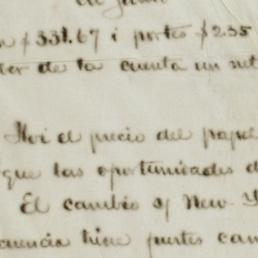 $331.67 i portes $2.35
de la cuenta un
Hoi el precio del papel
que las oportunidades d
El cambio s/ New Y
cuencia tiene partes can